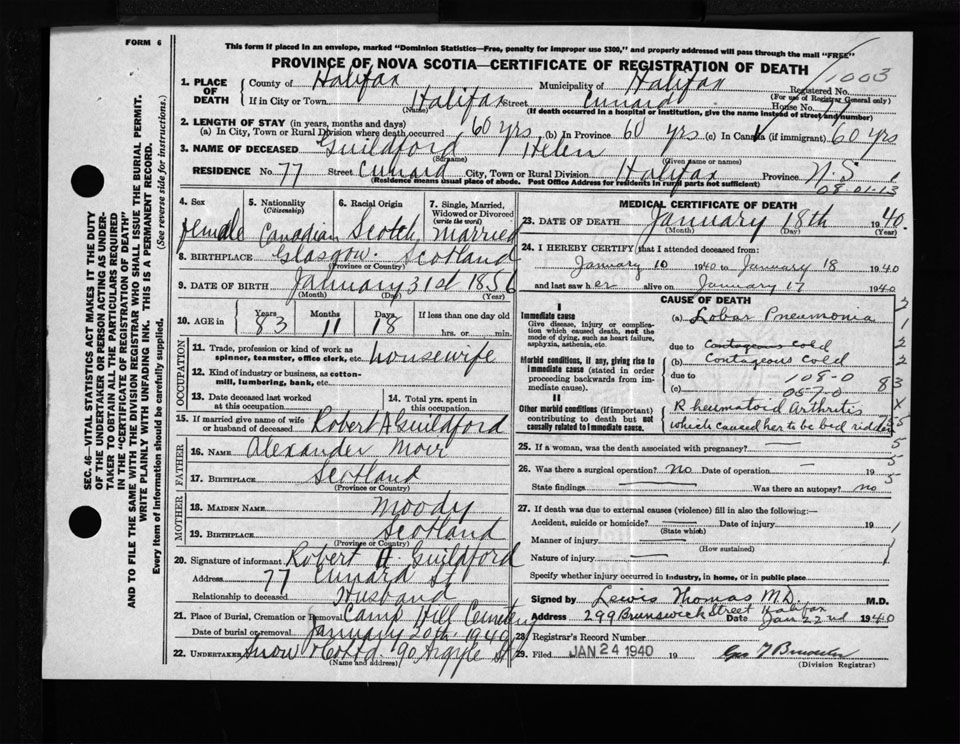 FORM 6
This form if placed in an envelope, marked "Dominion Statistics—Free, penalty for improper use $300," and properly addressed will pass through the mail "FREE"
PROVINCE OF NOVA SCOTIA—CERTIFICATE OF REGISTRATION OF DEATH
1003
1. PLACE OF DEATH County of Halifax Municipality of Halifax Registered No.
(For use of Registrar General only)
If in City or Town Halifax Street Cunard House No. 77
(Name) (If death occurred in a hospital or institution, give the name instead of street and number)
2. LENGTH OF STAY (in years, months and days)
(a) In City, Town or Rural Division where death occurred 60 yrs (b) In Province 60 yrs (c) In Canada (if immigrant) 60 yrs
3. NAME OF DECEASED Guildford Helen
(Surname) (Given name or names)
RESIDENCE No. 77 Street Cunard City, Town or Rural Division Halifax Province N.S.
(Residence means usual place of abode. Post Office Address for residents in rural parts not sufficient)
08-01-13
4. Sex female
5. Nationality (Citizenship) Canadian
6. Racial Origin Scotch
7. Single, Married, Widowed or Divorced (write the word) Married
8. BIRTHPLACE Glasgow. Scotland
(Province or Country)
9. DATE OF BIRTH January 31st 1856
(Month) (Day) (Year)
10. AGE in Years 83 Months 11 Days 18 If less than one day old
hrs. or min.
OCCUPATION
11. Trade, profession or kind of work as spinner, teamster, office clerk, etc. housewife
12. Kind of industry or business, as cotton-mill, lumbering, bank, etc.
13. Date deceased last worked at this occupation
14. Total yrs. spent in this occupation
15. If married give name of wife or husband of deceased Robert A Guildford
FATHER
16. NAME Alexander Moir
17. BIRTHPLACE Scotland
(Province or Country)
MOTHER
18. MAIDEN NAME Moody
19. BIRTHPLACE Scotland
(Province or Country)
20. Signature of informant Robert A Guildford
Address 77 Cunard St
Relationship to deceased Husband
21. Place of Burial, Cremation or Removal Camp Hill Cemetery
Date of burial or removal January 20th 1940
22. UNDERTAKER Snow & Co Ltd 90 Argyle St
(Name and address)
MEDICAL CERTIFICATE OF DEATH
23. DATE OF DEATH January 18th 1940.
(Month) (Day) (Year)
24. I HEREBY CERTIFY that I attended deceased from:
January 10 1940 to January 18 1940
and last saw her alive on January 17 1940
CAUSE OF DEATH
I
Immediate cause
Give disease, injury or complication which caused death, not the mode of dying, such as heart failure, asphyxia, asthenia, etc.
(a) Lobar Pneumonia
due to Contageous cold
Morbid conditions, if any, giving rise to immediate cause (stated in order proceeding backwards from immediate cause).
(b) Contageous cold
due to 108-0
(c) 057-0
83
II
Other morbid conditions (if important) contributing to death but not causally related to immediate cause.
Rheumatoid Arthritis
which caused her to be bed ridden
25. If a woman, was the death associated with pregnancy?
26. Was there a surgical operation? no Date of operation — 19
State findings — Was there an autopsy? no
27. If death was due to external causes (violence) fill in also the following:—
Accident, suicide or homicide? — Date of injury 19
(State which)
Manner of injury —
(How sustained)
Nature of injury —
Specify whether injury occurred in industry, in home, or in public place
Signed by Lewis Thomas M.D. M.D.
Address 299 Brunswick Street Halifax Date Jan 22nd 1940
28. Registrar's Record Number
29. Filed JAN 24 1940 19
(Division Registrar)
SEC. 46—VITAL STATISTICS ACT MAKES IT THE DUTY
OF THE UNDERTAKER OR PERSON ACTING AS UNDER-
TAKER TO OBTAIN ALL THE PARTICULARS REQUIRED
IN THE "CERTIFICATE OF REGISTRATION OF DEATH"
AND TO FILE THE SAME WITH THE DIVISION REGISTRAR WHO SHALL ISSUE THE BURIAL PERMIT.
WRITE PLAINLY WITH UNFADING INK. THIS IS A PERMANENT RECORD.
Every item of Information should be carefully supplied. (See reverse side for instructions.)